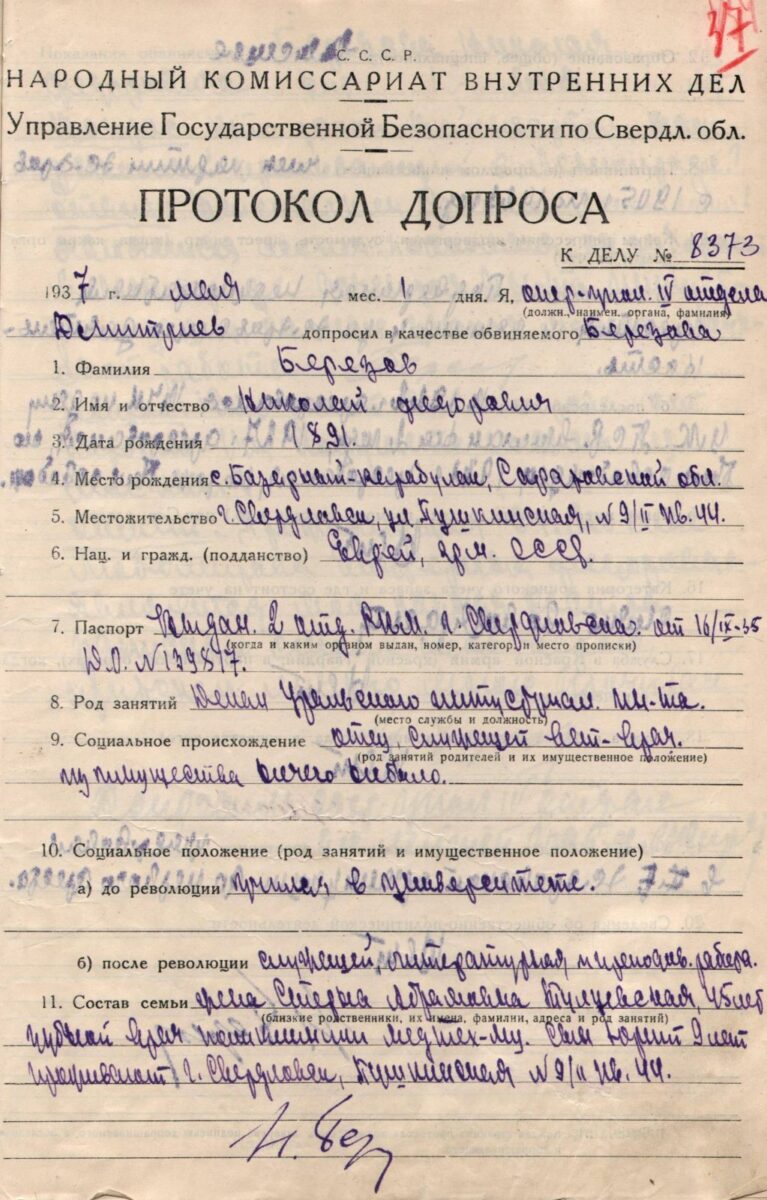 37
С. С. С. Р.
НАРОДНЫЙ КОМИССАРИАТ ВНУТРЕННИХ ДЕЛ
Управление Государственной Безопасности по Свердл. обл.
ПРОТОКОЛ ДОПРОСА
К ДЕЛУ № 8373
1937 г. мая мес. 1 дня. Я, опер-упол. IV отдела
(должн., наимен. органа, фамилия)
Дмитриев допросил в качестве обвиняемого Березова
1. Фамилия Березов
2. Имя и отчество Николай Федорович
3. Дата рождения 1891.
4. Место рождения с. Базарный-Карабулак, Саратовской обл.
5. Местожительство г. Свердловск, ул Пушкинская, № 9/II кв. 44.
6. Нац. и гражд. (подданство) Еврей, гр. СССР.
7. Паспорт Выдан. 2 отд. РКМ. г. Свердловска. от 16/IX-35
(когда и каким органом выдан, номер, категор. и место прописки)
№ 139817.
8. Род занятий Декан Уральского ин-та.
(место службы и должность)
9. Социальное происхождение отец, служащей вет-врач.
(род занятий родителей и их имущественное положение)
имущества ничего небыло.
10. Социальное положение (род занятий и имущественное положение)
а) до революции учился в университете.
б) после революции служащей, литературная и преподав. работа.
11. Состав семьи жена Абрамовна 45 лет
(близкие родственники, их имена, фамилии, адреса и род занятий)
зубной врач поликлиники Сын Юрий 9 лет
проживают г. Свердловск, Пушкинская № 9/II кв. 44.